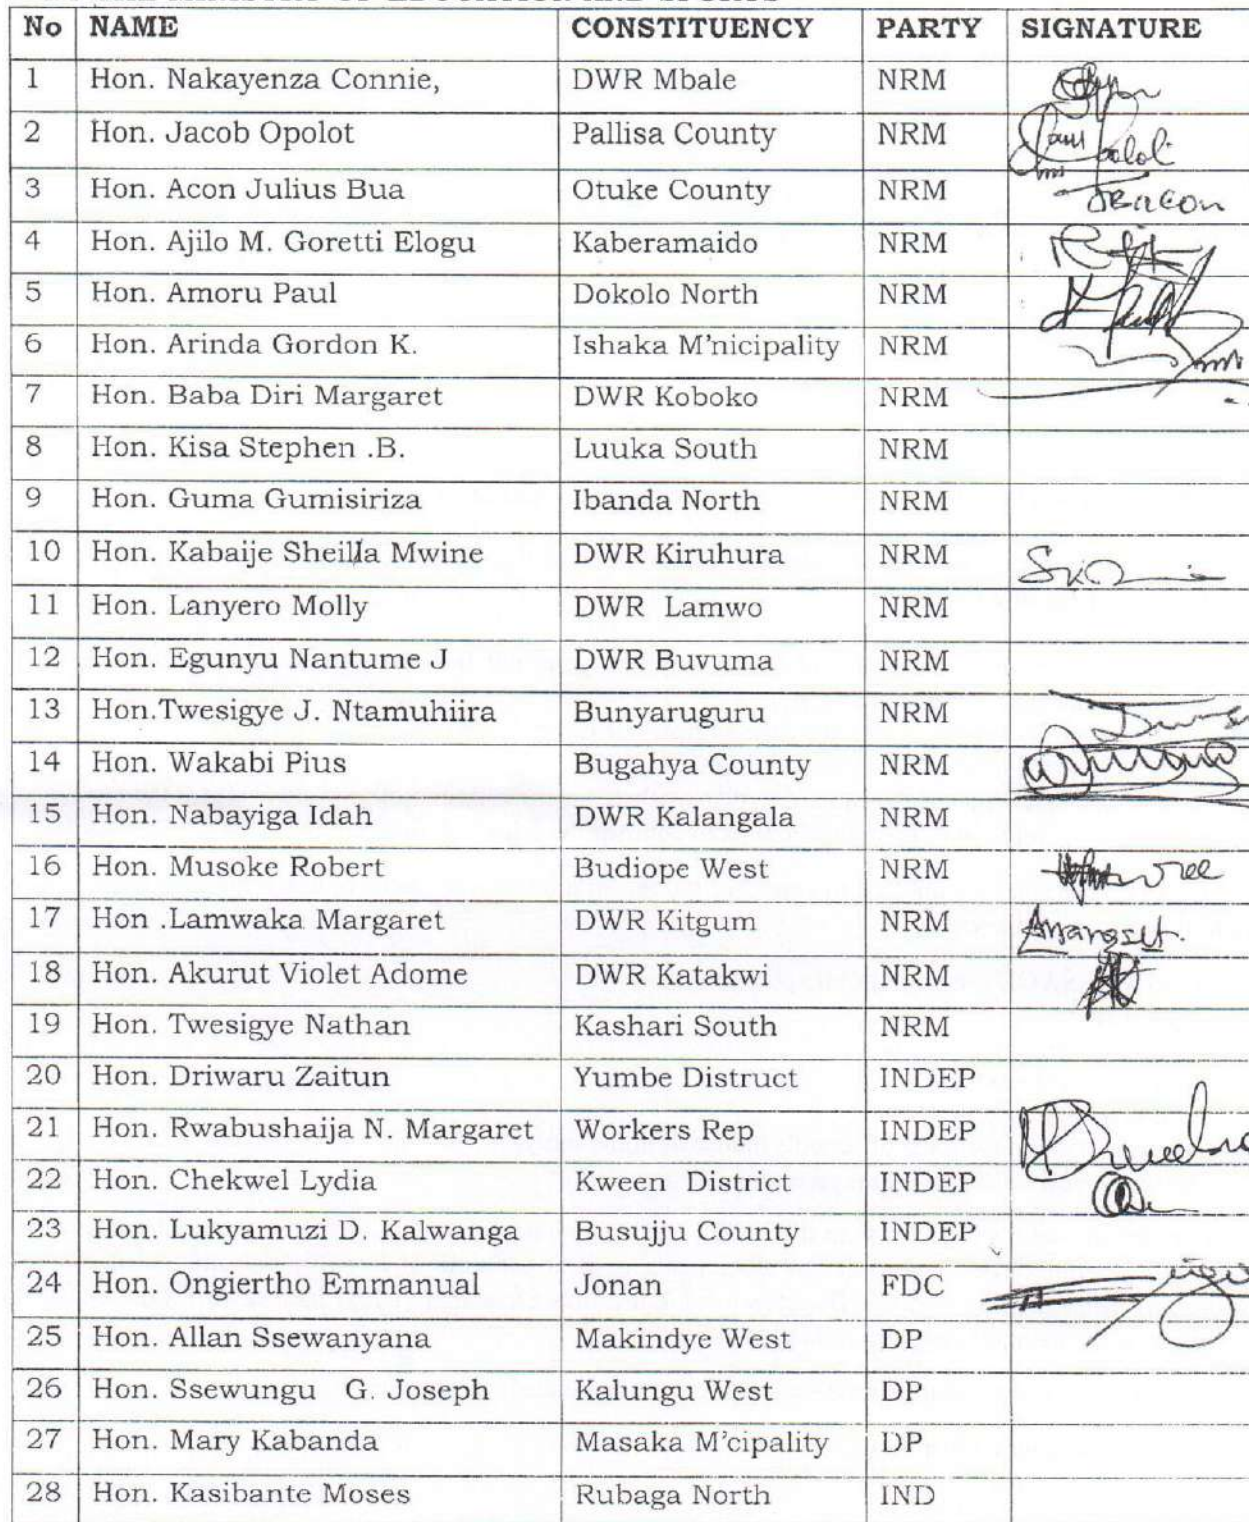 No NAME CONSTITUENCY PARTY SIGNATURE
1 Hon. Nakayenza Connie, DWR Mbale NRM
2 Hon. Jacob Opolot Pallisa County NRM
3 Hon. Acon Julius Bua Otuke County NRM
4 Hon. Ajilo M. Goretti Elogu Kaberamaido NRM
5 Hon. Amoru Paul Dokolo North NRM
6 Hon. Arinda Gordon K. Ishaka M'nicipality NRM
7 Hon. Baba Diri Margaret DWR Koboko NRM
8 Hon. Kisa Stephen .B. Luuka South NRM
9 Hon. Guma Gumisiriza Ibanda North NRM
10 Hon. Kabaije Sheilla Mwine DWR Kiruhura NRM
11 Hon. Lanyero Molly DWR Lamwo NRM
12 Hon. Egunyu Nantume J DWR Buvuma NRM
13 Hon.Twesigye J. Ntamuhiira Bunyaruguru NRM
14 Hon. Wakabi Pius Bugahya County NRM
15 Hon. Nabayiga Idah DWR Kalangala NRM
16 Hon. Musoke Robert Budiope West NRM
17 Hon .Lamwaka Margaret DWR Kitgum NRM
18 Hon. Akurut Violet Adome DWR Katakwi NRM
19 Hon. Twesigye Nathan Kashari South NRM
20 Hon. Driwaru Zaitun Yumbe Distruct INDEP
21 Hon. Rwabushaija N. Margaret Workers Rep INDEP
22 Hon. Chekwel Lydia Kween District INDEP
23 Hon. Lukyamuzi D. Kalwanga Busujju County INDEP
24 Hon. Ongiertho Emmanual Jonan FDC
25 Hon. Allan Ssewanyana Makindye West DP
26 Hon. Ssewungu G. Joseph Kalungu West DP
27 Hon. Mary Kabanda Masaka M'cipality DP
28 Hon. Kasibante Moses Rubaga North IND